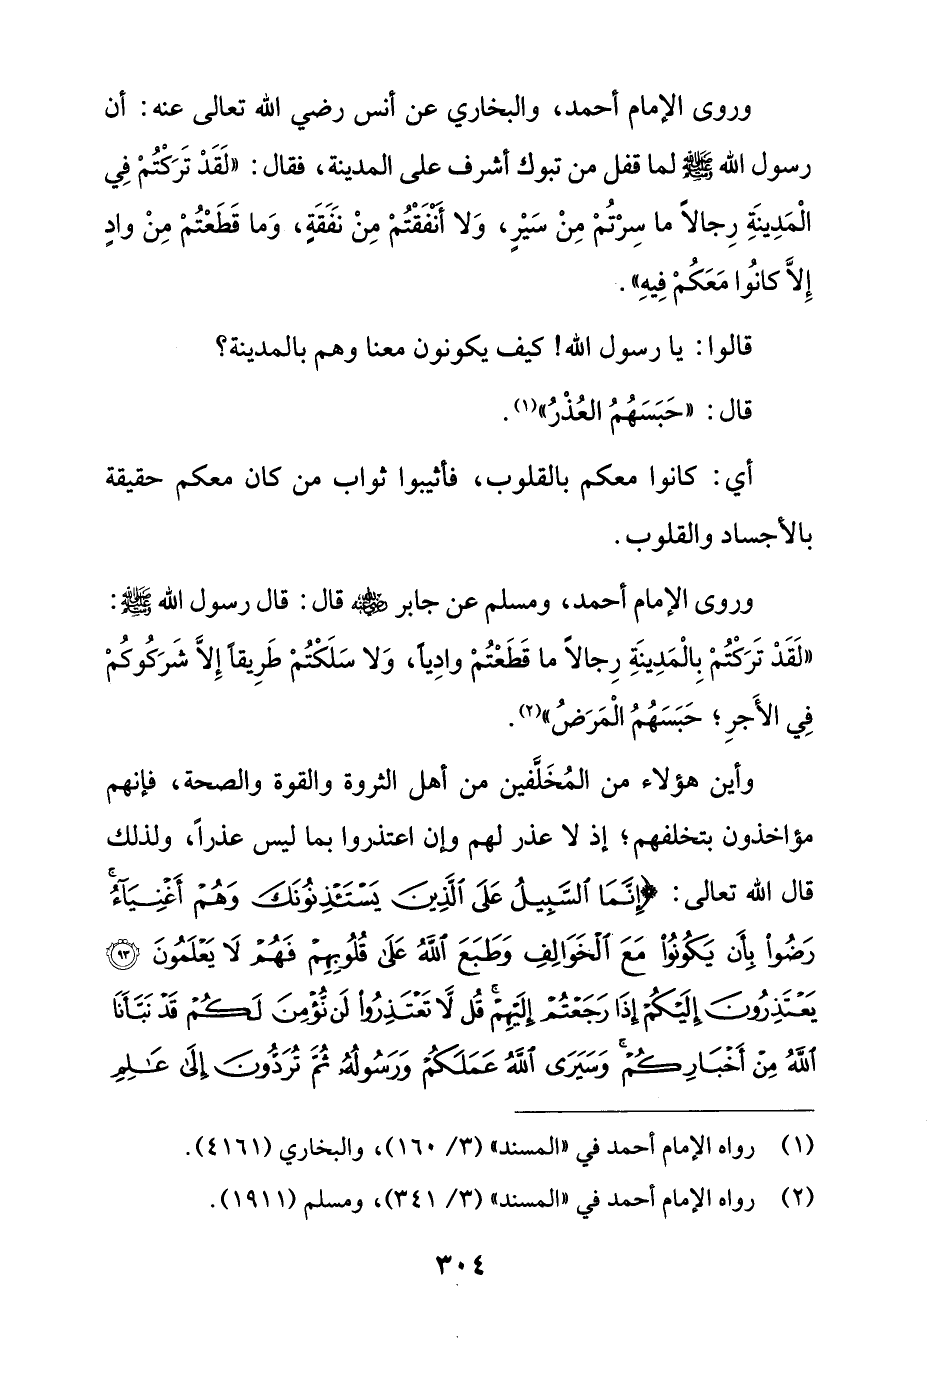 وروى الإمام أحمد، والبخاري عن أنس رضي الله تعالى عنه: أن
رسول الله ﷺ لما قفل من تبوك أشرف على المدينة، فقال: «لَقَدْ تَرَكْتُمْ فِي
الْمَدِينَةِ رِجالاً ما سِرْتُمْ مِنْ سَيْرٍ، وَلا أَنْفَقْتُمْ مِنْ نَفَقَةٍ، وَما قَطَعْتُمْ مِنْ وادٍ
إِلاَّ كانُوا مَعَكُمْ فِيهِ».
قالوا: يا رسول الله! كيف يكونون معنا وهم بالمدينة؟
قال: «حَبَسَهُمُ العُذْرُ»(١).
أي: كانوا معكم بالقلوب، فأثيبوا ثواب من كان معكم حقيقة
بالأجساد والقلوب.
وروى الإمام أحمد، ومسلم عن جابر رضي الله عنه قال: قال رسول الله ﷺ:
«لَقَدْ تَرَكْتُمْ بِالْمَدِينَةِ رِجالاً ما قَطَعْتُمْ وادِياً، وَلا سَلَكْتُمْ طَرِيقاً إِلاَّ شَرَكُوكُمْ
فِي الأَجرِ؛ حَبَسَهُمُ الْمَرَضُ»(٢).
وأين هؤلاء من المُخَلَّفين من أهل الثروة والقوة والصحة، فإنهم
مؤاخذون بتخلفهم؛ إذ لا عذر لهم وإن اعتذروا بما ليس عذراً، ولذلك
قال الله تعالى: ﴿إِنَّمَا ٱلسَّبِيلُ عَلَى ٱلَّذِينَ يَسْتَـْٔذِنُونَكَ وَهُمْ أَغْنِيَآءُ ۚ
رَضُوا۟ بِأَن يَكُونُوا۟ مَعَ ٱلْخَوَالِفِ وَطَبَعَ ٱللَّهُ عَلَىٰ قُلُوبِهِمْ فَهُمْ لَا يَعْلَمُونَ ٩٣
يَعْتَذِرُونَ إِلَيْكُمْ إِذَا رَجَعْتُمْ إِلَيْهِمْ ۚ قُل لَّا تَعْتَذِرُوا۟ لَن نُّؤْمِنَ لَكُمْ قَدْ نَبَّأَنَا
ٱللَّهُ مِنْ أَخْبَارِكُمْ ۚ وَسَيَرَى ٱللَّهُ عَمَلَكُمْ وَرَسُولُهُۥ ثُمَّ تُرَدُّونَ إِلَىٰ عَـٰلِمِ
(١) رواه الإمام أحمد في «المسند» (٣/ ١٦٠)، والبخاري (٤١٦١).
(٢) رواه الإمام أحمد في «المسند» (٣/ ٣٤١)، ومسلم (١٩١١).
٣٠٤